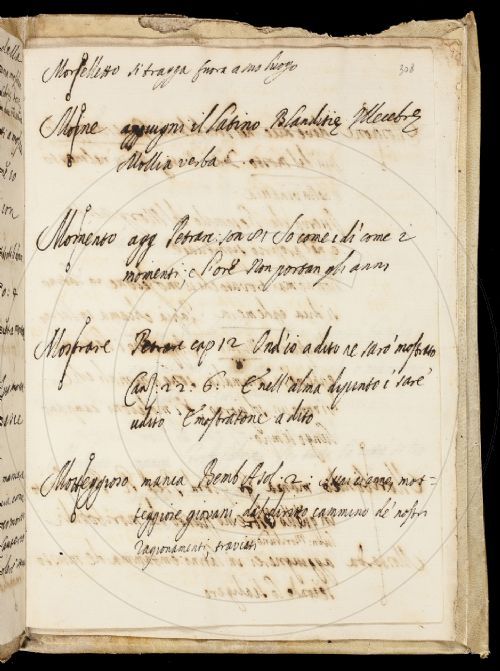 308
Morselletto si tragga fuora a suo luogo
Moine aggiugni il latino Blanditię Illecebrę
Mollia verba
Momento agg Petrar. son 81 So come i dì come i
momenti, e l'ore Non portan gli anni
Mostrare Petrar cap 12 Ond'io a dito ne sarò mostrato
Canz. 22. 6. E nell'alma
udito E mostratone a dito
Motteggioso manca Bemb Asol: 2: mot=
teggiose giovani dal diritto cammino de' nostri
ragionamenti traviati